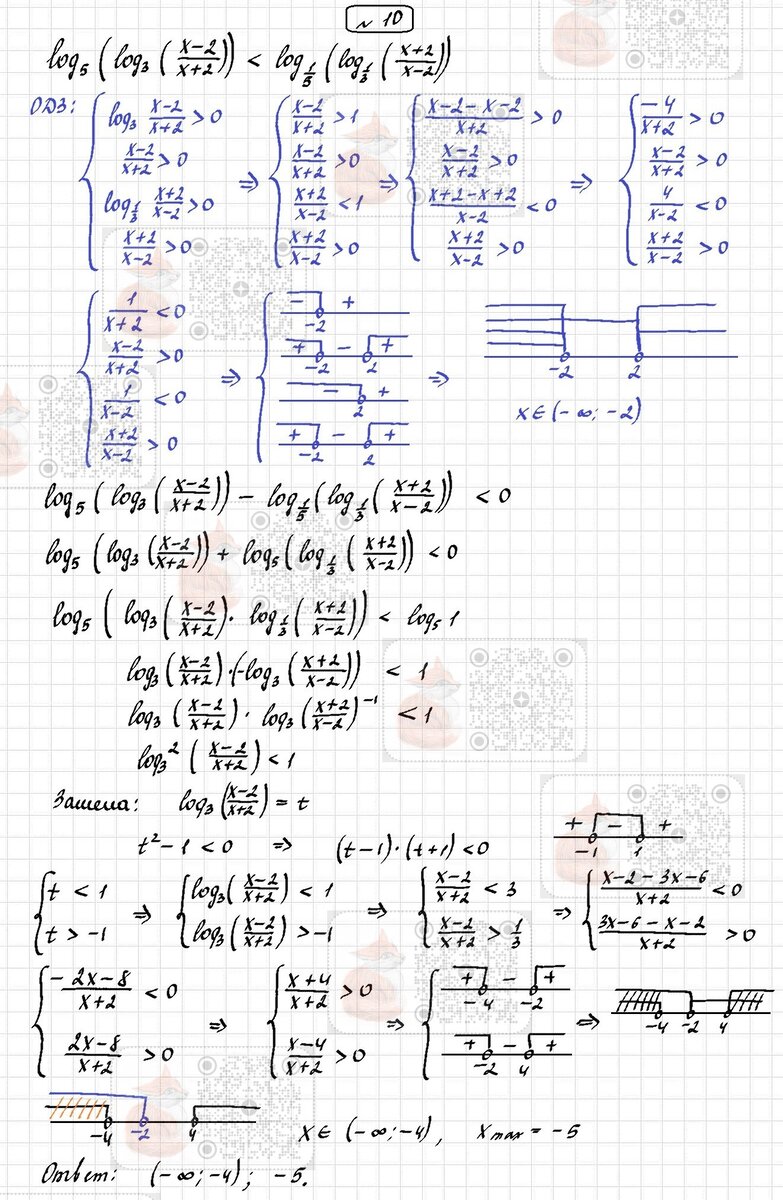 № 10
log₅(log₃((x-2)/(x+2))) < log_{1/5}(log_{1/3}((x+2)/(x-2)))
ОДЗ: { log₃ (x-2)/(x+2) > 0 ⇒ { (x-2)/(x+2) > 1 ⇒ { (x-2-x-2)/(x+2) > 0 ⇒ { (-4)/(x+2) > 0
(x-2)/(x+2) > 0 (x-2)/(x+2) > 0 (x-2)/(x+2) > 0 (x-2)/(x+2) > 0
log_{1/3} (x+2)/(x-2) > 0 (x+2)/(x-2) < 1 (x+2-x+2)/(x-2) < 0 4/(x-2) < 0
(x+2)/(x-2) > 0 (x+2)/(x-2) > 0 (x+2)/(x-2) > 0 (x+2)/(x-2) > 0
{ 1/(x+2) < 0 ⇒ { - + -2 ⇒ -2 2
(x-2)/(x+2) > 0 + - + -2 2
1/(x-2) < 0 - + 2 x ∈ (-∞; -2)
(x+2)/(x-2) > 0 + - + -2 2
log₅(log₃((x-2)/(x+2))) - log_{1/5}(log_{1/3}((x+2)/(x-2))) < 0
log₅(log₃((x-2)/(x+2))) + log₅(log_{1/3}((x+2)/(x-2))) < 0
log₅(log₃((x-2)/(x+2)) · log_{1/3}((x+2)/(x-2))) < log₅ 1
log₃((x-2)/(x+2)) · (-log₃((x+2)/(x-2))) < 1
log₃((x-2)/(x+2)) · log₃((x+2)/(x-2))⁻¹ < 1
log₃²((x-2)/(x+2)) < 1
Замена: log₃((x-2)/(x+2)) = t
t² - 1 < 0 ⇒ (t-1)·(t+1) < 0 + - + -1 1
{ t < 1 ⇒ { log₃((x-2)/(x+2)) < 1 ⇒ { (x-2)/(x+2) < 3 ⇒ { (x-2-3x-6)/(x+2) < 0
t > -1 log₃((x-2)/(x+2)) > -1 (x-2)/(x+2) > 1/3 (3x-6-x-2)/(x+2) > 0
{ (-2x-8)/(x+2) < 0 ⇒ { (x+4)/(x+2) > 0 ⇒ { + - + -4 -2 ⇒ -4 -2 4
(2x-8)/(x+2) > 0 (x-4)/(x+2) > 0 + - + -2 4
-4 -2 4 x ∈ (-∞; -4), x max = -5
Ответ: (-∞; -4); -5.